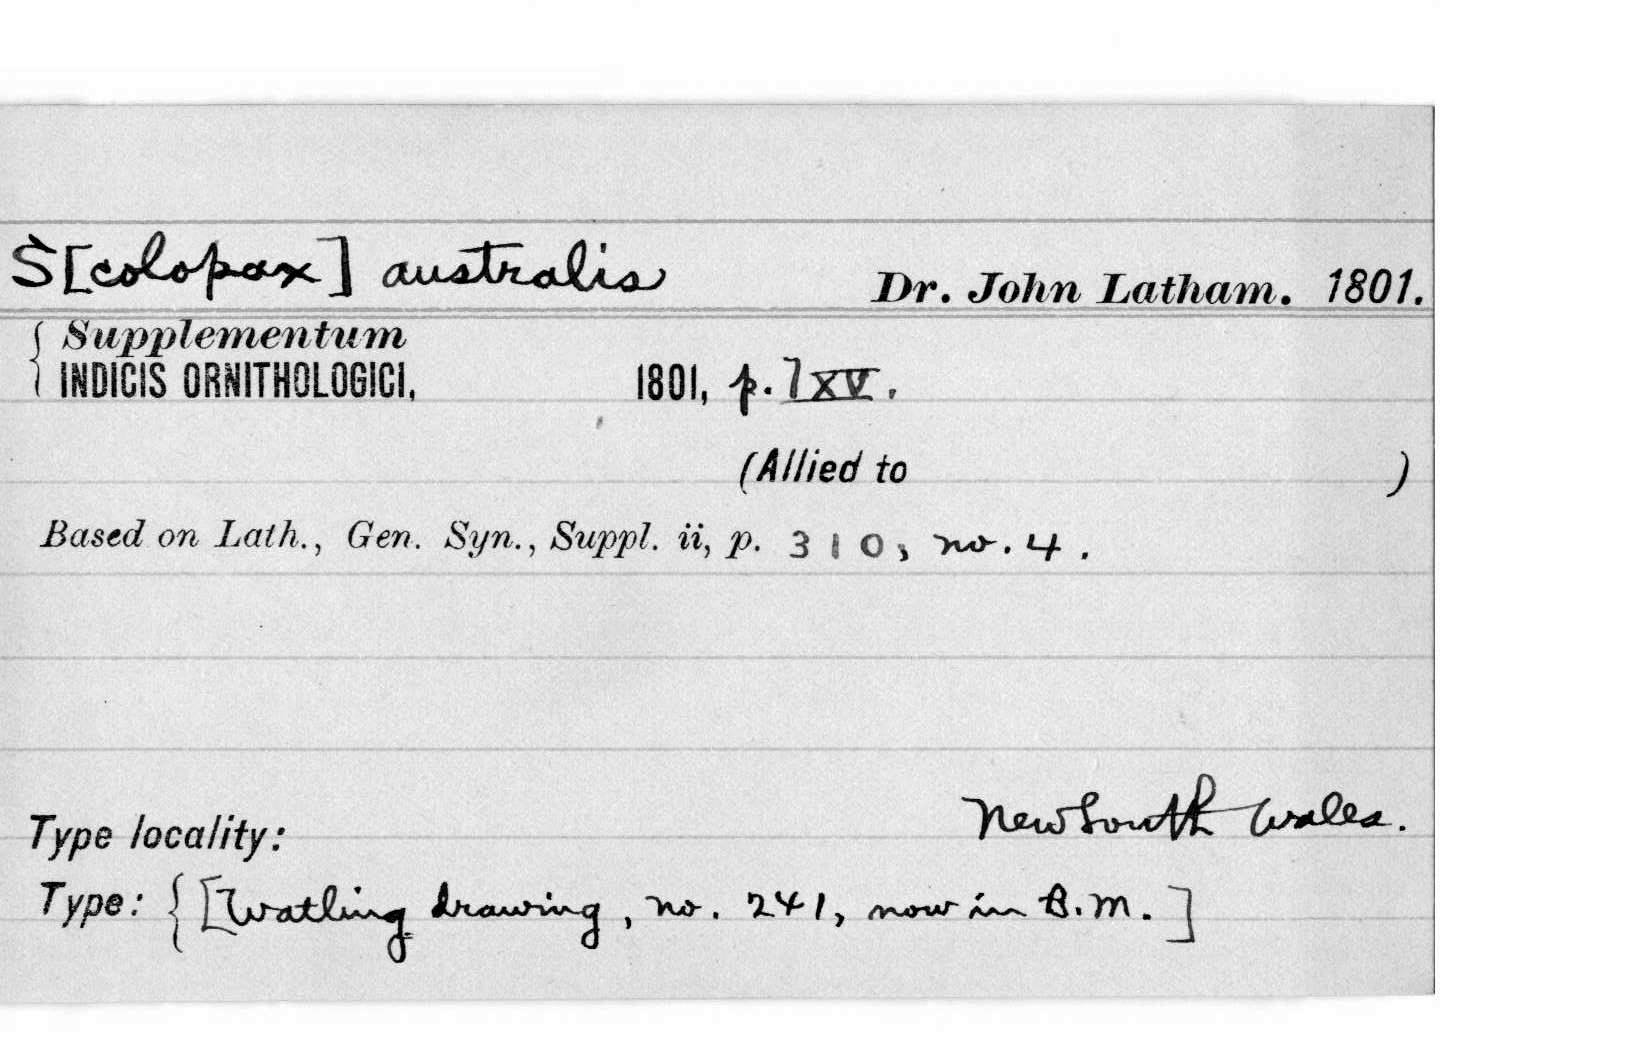 S[colopax] australis Dr. John Latham. 1801.
{ Supplementum
INDICIS ORNITHOLOGICI, 1801, p. lxv.
(Allied to )
Based on Lath., Gen. Syn., Suppl. ii, p. 310, no. 4.
Type locality: New South Wales.
Type: { [Watling drawing, no. 241, now in B.M.]